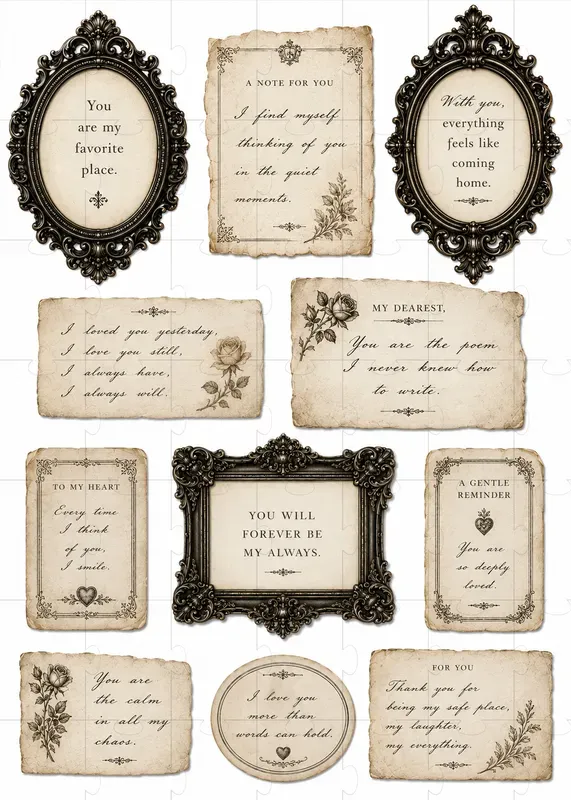 You
are my
favorite
place.
A NOTE FOR YOU
I find myself
thinking of you
in the quiet
moments.
With you,
everything
feels like
coming
home.
I loved you yesterday,
I love you still,
I always have,
I always will.
MY DEAREST,
You are the poem
I never knew how
to write.
TO MY HEART
Every time
I think
of you,
I smile.
YOU WILL
FOREVER BE
MY ALWAYS.
A GENTLE
REMINDER
You are
so deeply
loved.
You are
the calm
in all my
chaos.
I love you
more than
words can hold.
FOR YOU
Thank you for
being my safe place,
my laughter,
my everything.